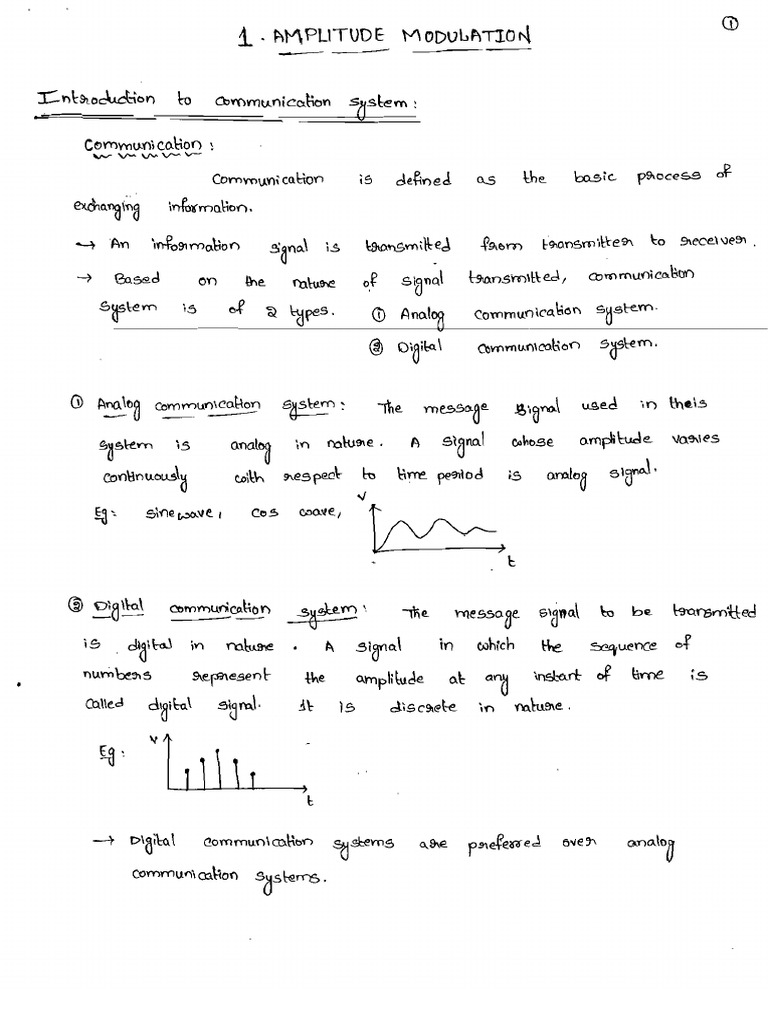 ①
1. AMPLITUDE MODULATION
Introduction to communication system:
Communication:
Communication is defined as the basic process of
exchanging information.
→ An information signal is transmitted from transmitter to receiver.
→ Based on the nature of signal transmitted, communication
system is of 2 types. ① Analog communication system.
② Digital communication system.
① Analog communication system: The message signal used in theis
system is analog in nature. A signal whose amplitude varies
continuously with respect to time period is analog signal.
Eg: sine wave, cos wave,
V
t
② Digital communication system: The message signal to be transmitted
is digital in nature. A signal in which the sequence of
numbers represent the amplitude at any instant of time is
called digital signal. It is discrete in nature.
Eg:
V
t
→ Digital communication systems are preferred over analog
communication systems.